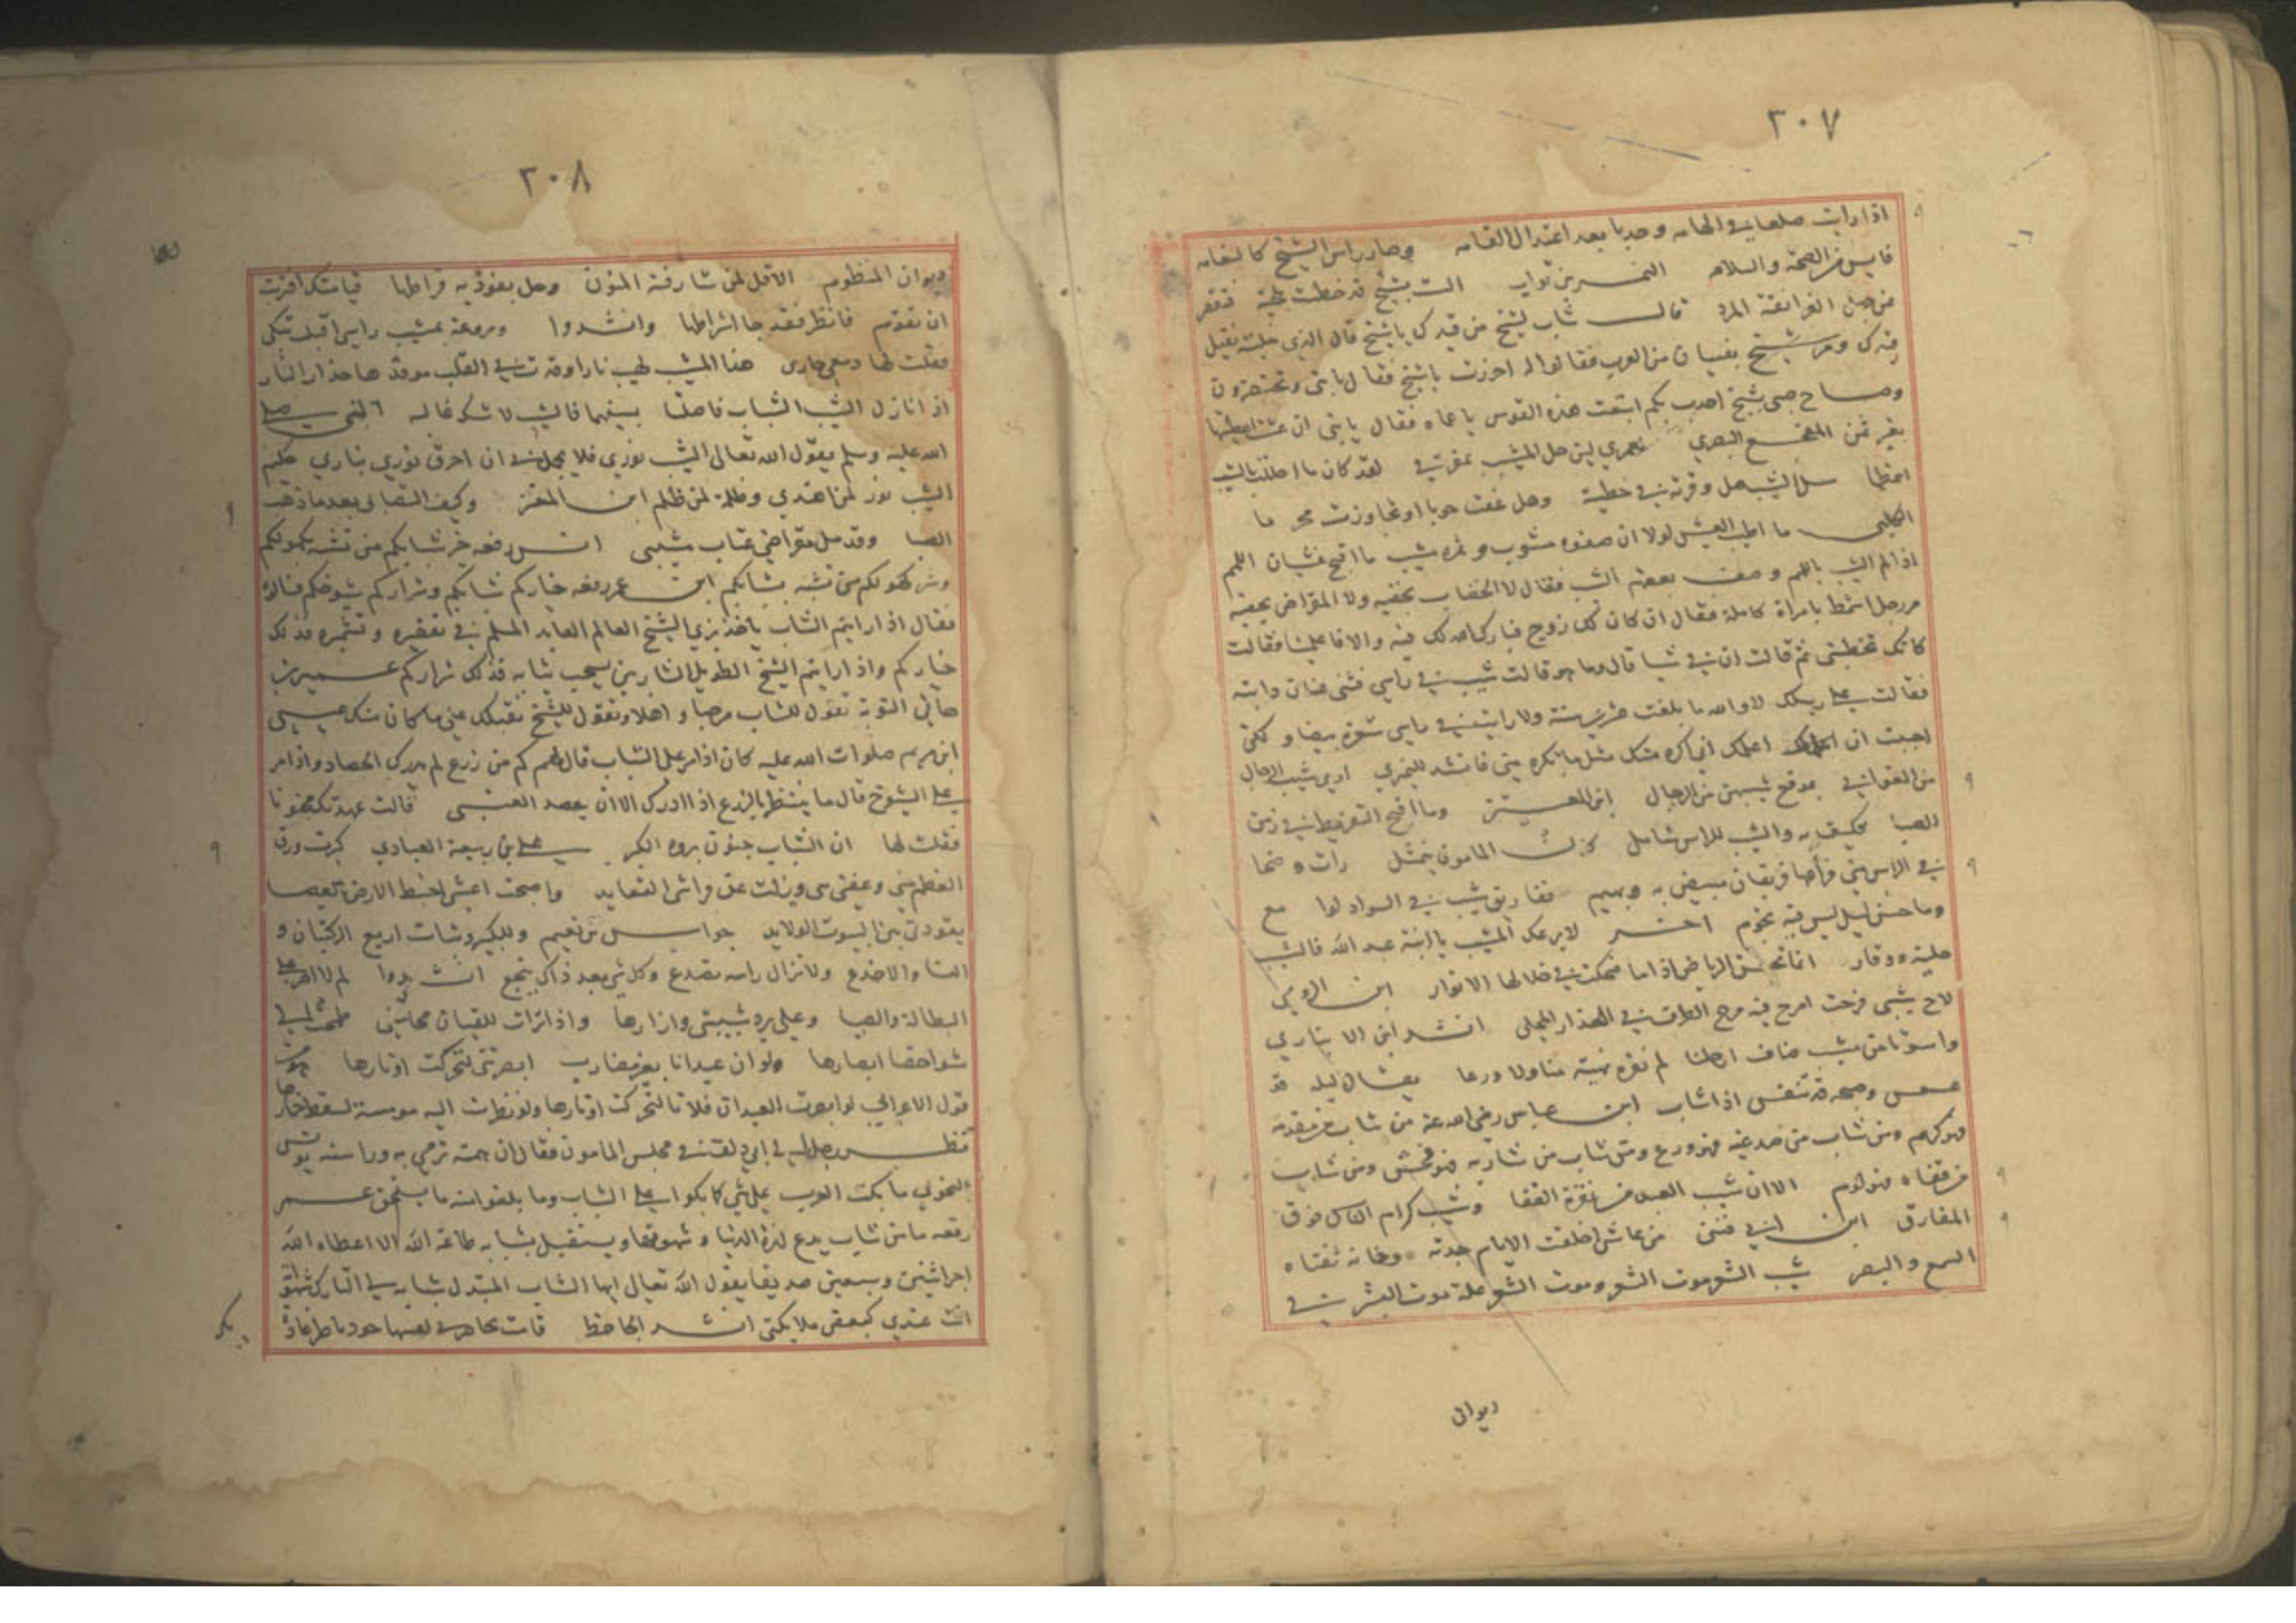 ٣٠٧
اذا رايت صلعا في الهامه وحدبا بعد اعتدال القامه وصار راس الشيخ كالثغامه
فايس من الصحة والسلامه النمر بن تولب الست بشيخ قد خطمت بلحية فتقصر
عن جهل الغرانقة المرد قال شاب لشيخ من قيدك يا شيخ قال الذي خلفته يفتل
قيدك ومر شيخ بفتيان من العرب فقالوا له احززت يا شيخ فقال يا بني وتختضرون
وصاح صبي بشيخ احدب بكم ابتعت هذه القوس يا عماه فقال يا بني ان عشت اعطيتها
بغير ثمن البصري لعمري لئن حل المشيب بمفرقي لقد كان ما احللت بالشيب
اعظما سل الشيب هل وقرته في خطية وهل عفت حوبا او تجاوزت محرما
ما اطيب العيش لولا ان صفوه مشوب وثمره يشيب ما اقبح غشيان اللمم
اذا الم الشيب باللمم وصف بعضهم الشيب فقال لا الخضاب يخفيه ولا المقراض يحفيه
مر رجل اشمط بامراة كاملة فقال ان كان لك زوج فبارك الله لك فيه والا فاعلمينا فقالت
كانك تخطبني ثم قالت ان في شيا قال وما هو قالت شيب في راسي فثنى عنان دابته
فقالت على رسلك لا والله ما بلغت عشرين سنة ولا رايت في راسي شعرة بيضا ولكني
احببت ان اعلمك اني اكره منك مثل ما تكره مني فانشد للنميري ارى شيب الرجال
من الغواني بموقع شيبهن من الرجال ابن المعتز وما اقبح التفريط في زمن
الصبا فكيف به والشيب للراس شامل كان المامون يتمثل رات وضحا
في الراس مني فراعها فريقان مبيض به وبهيم تفاريق شيب في السواد لوامع
وما حسن ليل ليس فيه نجوم اخر لا يرعك المشيب يا ابنة عبد الله فالشيب
حلية ووقار انما تحسن الرياض اذا ما ضحكت في خلالها الانوار ابن الرومي
لاح شيبي فرحت امرح فيه مرح الطرف في العذار المحلى انشد ابن الانباري
واسوتا من مشيب ضاف ارحلنا لم نقره نهية منا ولا ورعا يقال ليله قد
عسعس وصبحه قد تنفس اذا شاب ابن عباس رضي الله عنه من شاب من مقدمه
فهو كرم ومن شاب من صدغيه فهو ورع ومن شاب من شاربه فهو فحش ومن شاب
من قفاه فهو لوم الا ان شيب العبد من نقرة القفا وشيب كرام الناس فوق
المفارق ابن ابي فنن من عاش اخلقت الايام جدته وخانه ثقتاه
السمع والبصر شيب الشعر موت الشعر وموت الشعر علة موت البشر في
ديوان
٣٠٨
ديوان المنظوم الاقل لمن شارفته المنون وهل يفوز به قراطها قيامتك اقتربت
ان تقوم فانظر فقد جا اشراطها وانشدوا ومروعة بمشيب راسي اقبلت تبكي
فقلت لها ودمعي جاري هذا المشيب لهيب نار اوقدت في القلب موقدها حذار النار
اذا نازل الشيب الشباب فاصلتا بسيفيهما فالشيب لا شك غالب النبي صلى
الله عليه وسلم يقول الله تعالى الشيب نوري فلا يجمل بي ان احرق نوري بناري حكيم
الشيب نور لمن اهتدى وظلمة لمن ظلم ابن المعتز وكيف التصابي بعد ما ذهب
الصبا وقد مل مقراضي عتاب مشيبي انس رفعه خير شبابكم من تشبه بكهولكم
وشر كهولكم من تشبه بشبابكم ابن عمر رفعه خياركم شبابكم وشراركم شيوخكم
فقال اذا رايتم الشاب ياخذ بزي الشيخ العالم العابد المسلم في تقفره وتشمره فذلك
خياركم واذا رايتم الشيخ الطويل الشاربين يسحب ثيابه فذلك شراركم عمير بن
هاني التوبة تقول للشاب مرحبا واهلا وتقول للشيخ نقبلك على ما كان منك عيسى
ابن مريم صلوات الله عليه كان اذا مر على الشباب قال لهم كم من زرع لم يدرك الحصاد واذا مر
على الشيوخ قال ما ينتظر بالزرع اذا ادرك الا ان يحصد العتبي قالت عهدتك مجنونا
فقلت لها ان الشباب جنون برءه الكبر علي بن ربيعة العبادي كبرت ورق
العظم مني وعقني بني وزلت عن فراشي القعايد واصبحت اعشى اخبط الارض بالعصا
يقودني بين البيوت الولايد جواس بن نعيم وللكبير رثيات اربع الركبتان و
النسا والاخدع ولا تزال راسه تصدع وكل شي بعد ذاك ييجع انشدوا لم لا الهو على
البطالة والصبا وعلي برد شبيبتي وازارها واذا ترات للقيان محاسني طمحت الي
شواخصا ابصارها ولو ان عيدانا بغير مضارب ابصرنني لتحركت اوتارها
قول الاعرابي لو ابصرت العيدان فلانا لتحركت اوتارها ولو نظرت اليه مومسة لسقط خمارها
نظر رجل الى ابي دلف في مجلس المامون فقال ان همته ترمي به وراء سنه يونس
النحوي ما بكت العرب على شي كما بكوا على الشباب وما بلغوا منه ما يستحق عمر
رفعه ما من شاب يدع لذة الدنيا وشهوتها ويستقبل بشبابه طاعة الله الا اعطاه الله
اجر اثنين وسبعين صديقا يقول الله تعالى ايها الشاب المبتذل شبابه لي التارك شهوته
انت عندي كبعض ملايكتي انشد الجاحظ